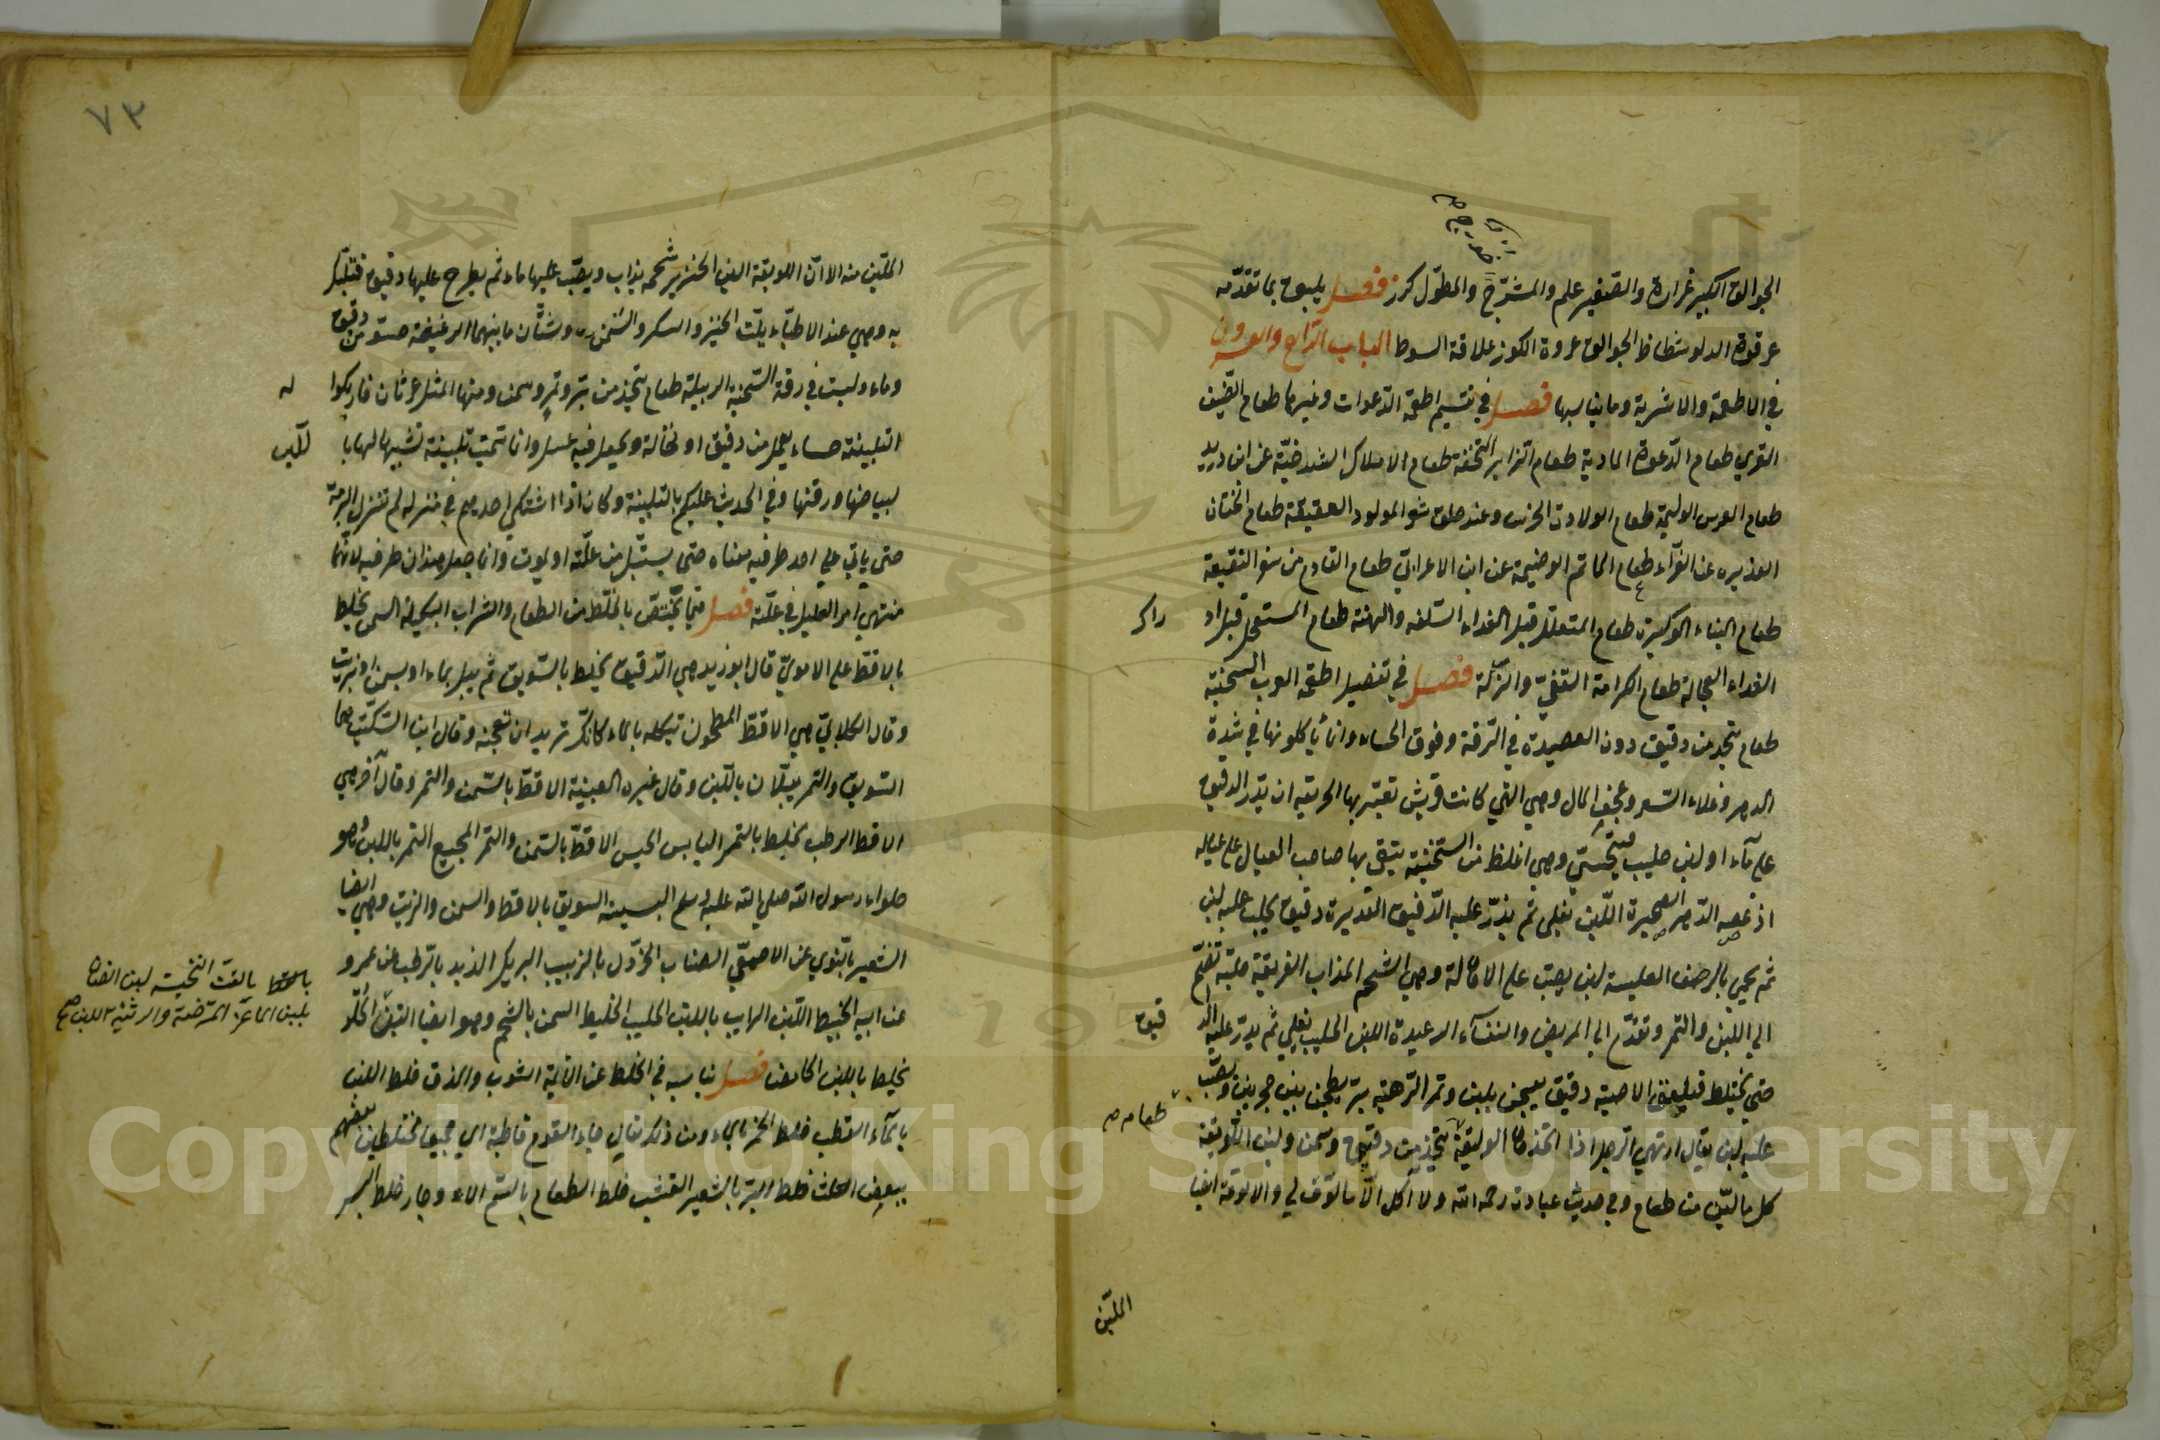 الجوالق الكبير غرارة والصغير علم والمشرّج والمطوّل كرز فصل يليق بما تقدّمه
عرقوة الدلو شظاظ الجوالق عروة الكوز علاقة السوط الباب الرّابع والعشرون
في الاطعمة والاشربة وما يناسبها فصل في تقسيم اطعمة الدّعوات وغيرها طعام الضّيف
القرى طعام الدّعوة المادبة طعام الزاير التحفة طعام الاملاك الشندخيّة عن ابن دريد
طعام العرس الوليمة طعام الولادة الخرس وعند حلق شعر المولود العقيقة طعام الختان
العذيره عن الفرّاء طعام الماتم الوضيمة عن ابن الاعرابيّ طعام القادم من سفر النقيعة
طعام البناء الوكيرة طعام المتعلّل قبل الغداء السّلفه والهنة طعام المستعجل قبل اد
راك
الغداء العجالة طعام الكرامة القفيّ والزّلّة فصل في تفصيل اطعمة العرب السخينة
طعام يتخذ من دقيق دون العصيدة في الرّقة وفوق الحساء وانما ياكلونها في شدة
الدهر وغلاء السعر وعجف المال وهي التي كانت قريش تعيّر بها الحريقه ان يذرّ الدقيق
على ماء او لبن حليب فيتحسى وهي اغلظ من السخينة يبقى بها صاحب العيال على عياله
اذ عضه الدّهر الصحيرة اللّبن يغلى ثم يذرّ عليه الدّقيق العذيرة دقيق يحلب عليه لبن
ثم يحمى بالرضف العكيسة لبن يصبّ على الاهالة وهي الشحم المذاب الفريقة حلبة تضمّ
الى اللبن والتمر وتقدّم الى المريض والنفساء الرغيدة اللبن الحليب يغلى ثم يذرّ عليه الد
قيق
حتى يختلط فيلعق الاصية دقيق يعجن بلبن وتمر الرّهية برّ يطحن بين حجرين ويصبّ
عليه لبن يقال ارتهى الرّجل اذا اتخذها الوليقة تتخذ من دقيق وسمن ولبن اللّويقة
طعام
كل ما ليّن من طعام وفي حديث عبادة رحمه الله ولا آكل الّا ما لوّق لي والالوقة ايضا
الملّين
٧٣
الملّين منه الا انّ اللويقة الين الخزير شحمه يذاب ويصبّ عليها ماء ثم يطرح عليها دقيق فيلبّك
به وهي عند الاطبّاء يلّت الخبز والسكر والسمن وشتّان ما بينهما الرغيغة حسو من دقيق
وماء وليست في رقة السّخينة الربيكة طعام يتخذ من برّ وتمر وسمن ومنها المثل غرثان فاربكوا
له
التلبينة حساء يعمل من دقيق او نخالة ويجعل فيه عسل وانما سمّيت تلبينة تشبيها لها با
للبن
لبياضها ورقتها وفي الحديث عليكم بالتلبينة وكان اذا اشتكى احدهم في منزله لم تنزل البرمة
حتى ياتي على احد طرفيه معناه حتى يستبلّ من علّته او يموت وانما جعل هذان طرفيه لانّهما
منتهى امر العليل في علّته فصل فيما يختصّ بالخلط من الطعام والشراب البكيلة السمن يخلط
بالاقط على الامويّ قال ابو زيد هي الدّقيق يخلط بالسّويق ثم يبلّ بماء او بسمن او زيت
وقال الكلابيّ هي الاقط المطحون تبكله بالماء كانّك تريد ان تعجنه وقال ابن السّكّيت هما
السّويق والتمر يبلّان باللّبن وقال غيره العبيثة الاقط بالسّمن والتمر وقال آخر هي
الاقط الرطب يخلط بالتمر اليابس الحيس الاقط بالسّمن والتمر المجيع التمر باللبن وهو
حلواء رسول الله صلى الله عليه وسلم البسيسه السويق بالاقط والسمن والزيت وهي ايضا
الشعير بالنوى عن الاصمعيّ الصناب الخردل بالزبيب البريك الزبد بالرطب عن عمرو
عن ابيه الخبيط اللّبن الرايب باللبن الحليب الخليط السمن بالشحم وهو ايضا التبن
يخلط باللبن الحامض فصل يناسبه في الخلط عن الائمة الشوب والمذق خلط اللبن
بالماء القطب خلط الخمر بالماء ومن ذلك يقال جاء القوم قاطبة اي جميعا مختلطين بعضهم
ببعض الغلث خلط البرّ بالشعير القشب خلط الطعام بالسّم
بالقتّ النخيسه لبن الضان
بلبن الماعز المرضة والرثيئة اللبن